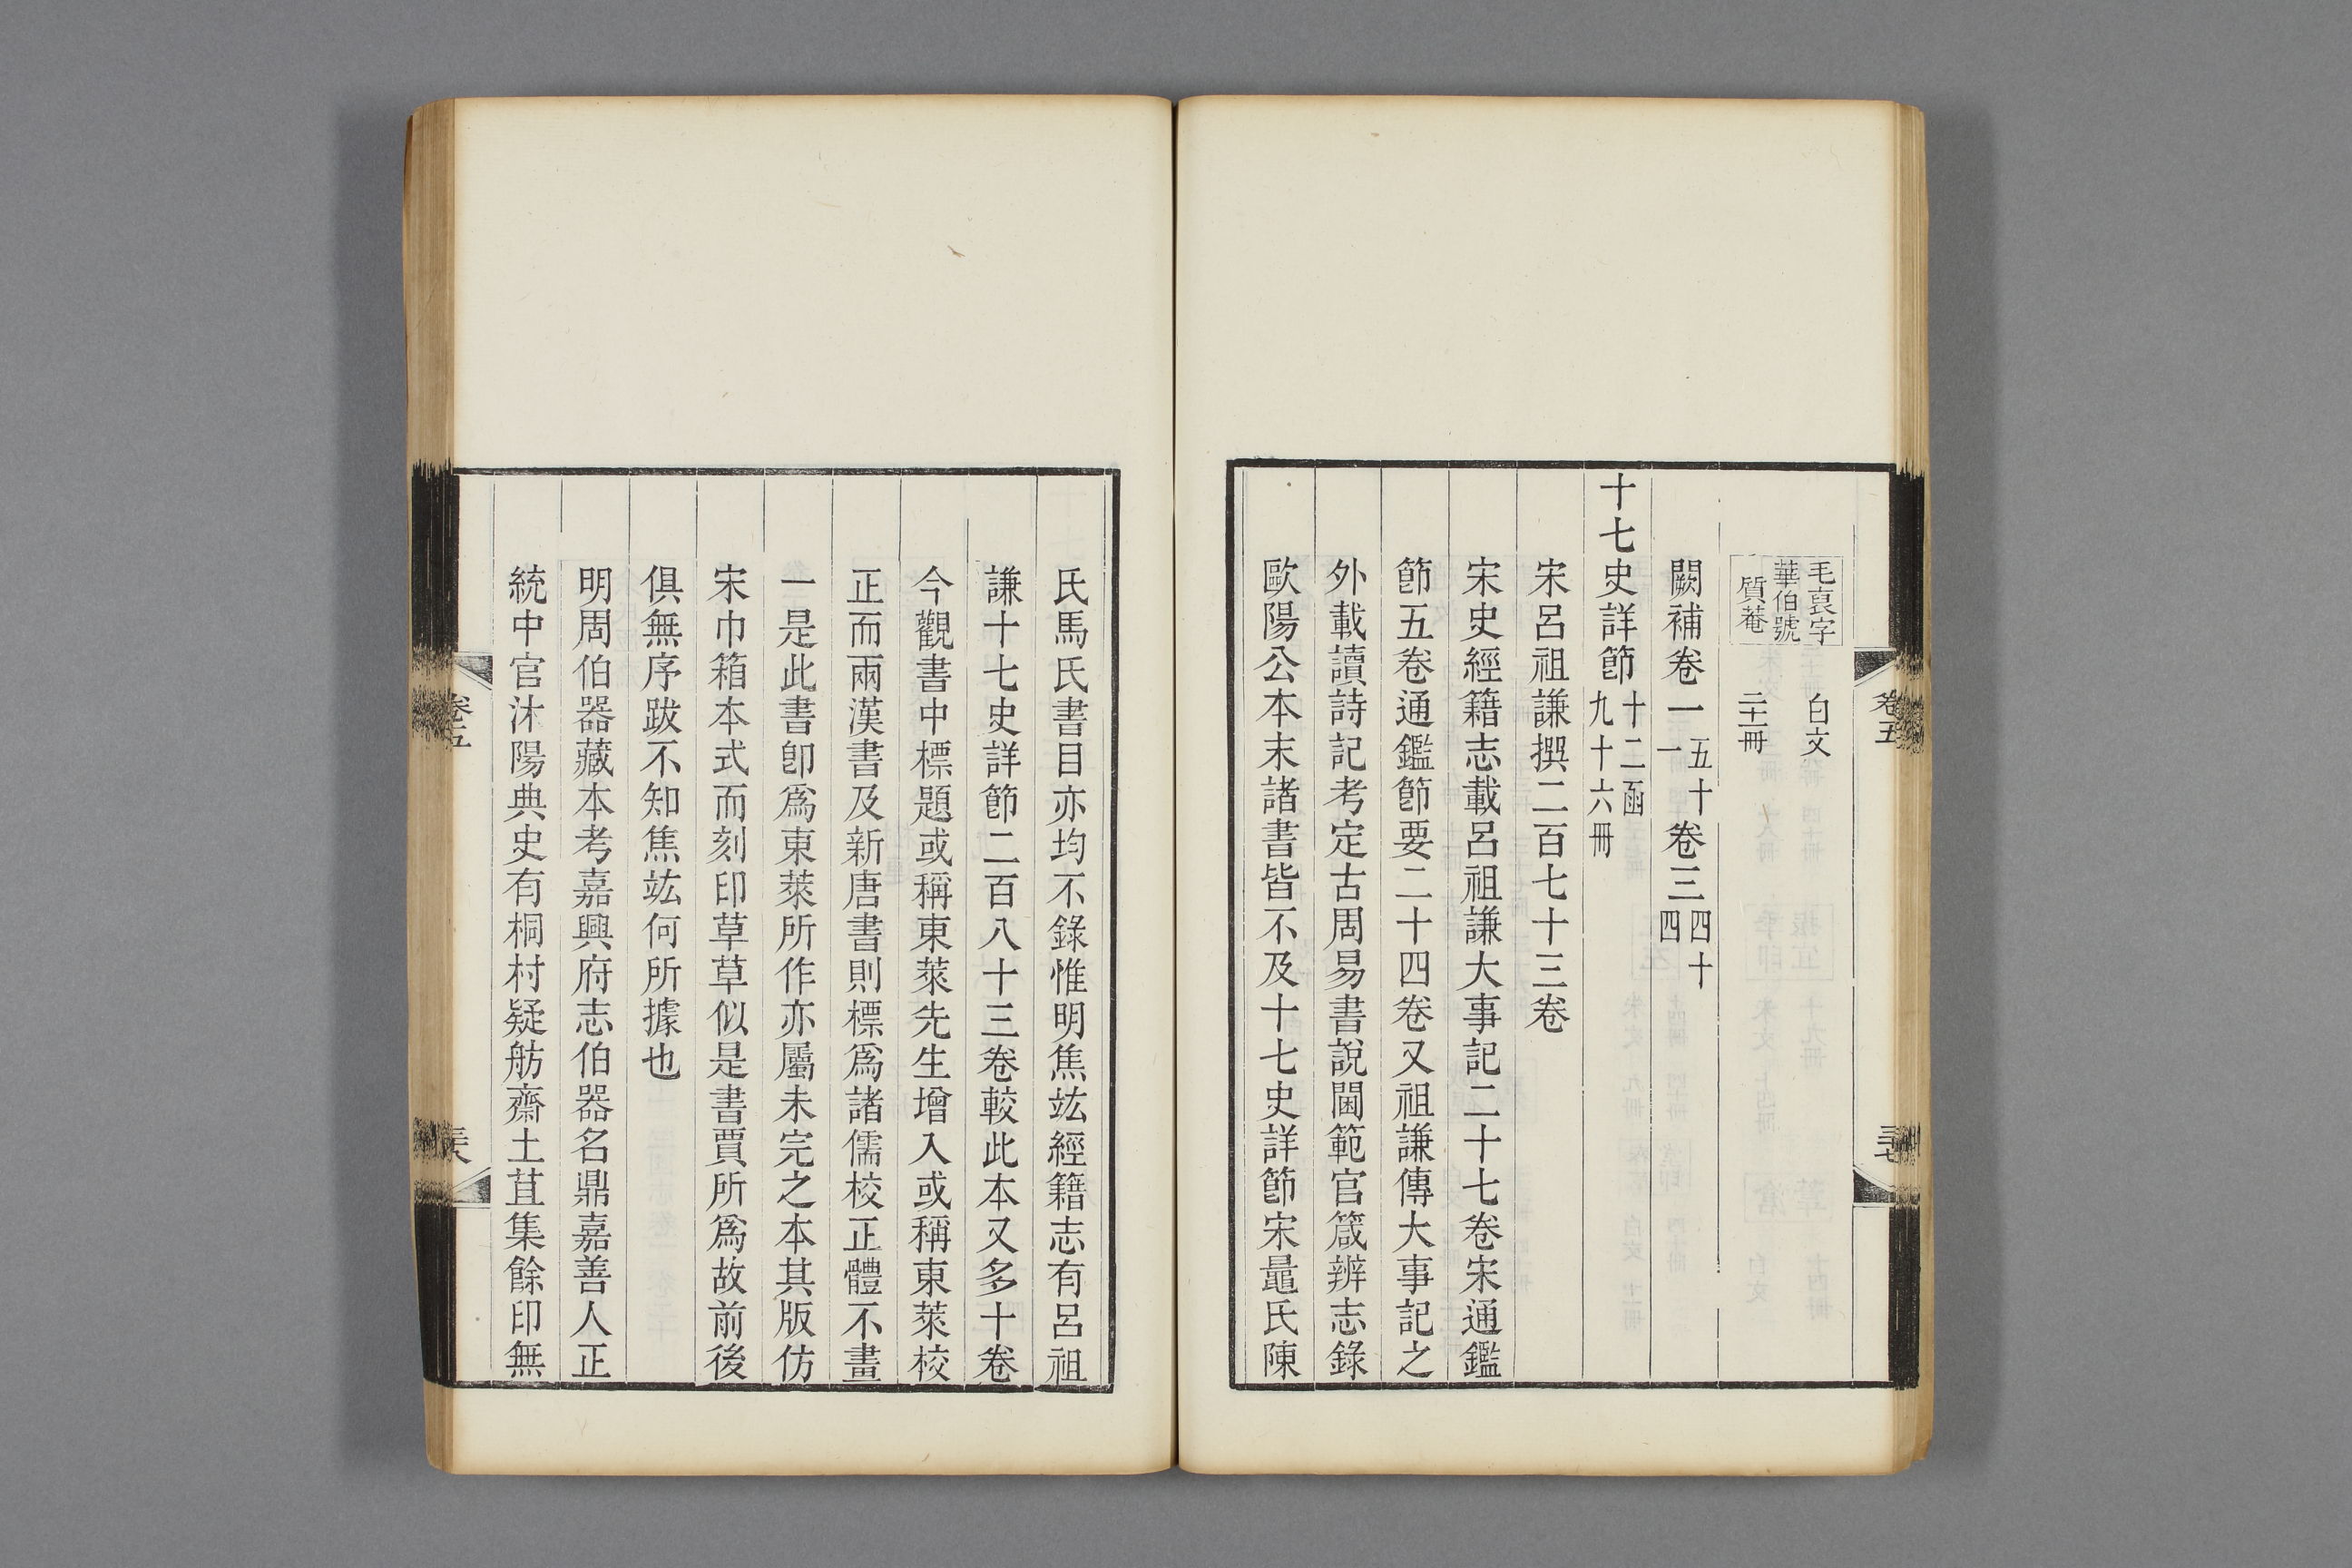 卷五
三十七
毛裒字
華伯號
質菴
白文
二十一冊
闕補卷一五十一卷三四十四
十七史詳節十二函九十六冊
宋呂祖謙撰二百七十三卷
宋史經籍志載呂祖謙大事記二十七卷宋通鑑
節五卷通鑑節要二十四卷又祖謙傳大事記之
外載讀詩記考定古周易書說閫範官箴辨志錄
歐陽公本末諸書皆不及十七史詳節宋鼂氏陳
氏馬氏書目亦均不錄惟明焦竑經籍志有呂祖
謙十七史詳節二百八十三卷較此本又多十卷
今觀書中標題或稱東萊先生增入或稱東萊校
正而兩漢書及新唐書則標爲諸儒校正體不畫
一是此書卽爲東萊所作亦屬未完之本其版仿
宋巾箱本式而刻印草草似是書賈所爲故前後
俱無序跋不知焦竑何所據也
明周伯器藏本考嘉興府志伯器名鼎嘉善人正
統中官沐陽典史有桐村疑舫齋土苴集餘印無
卷五
三十八